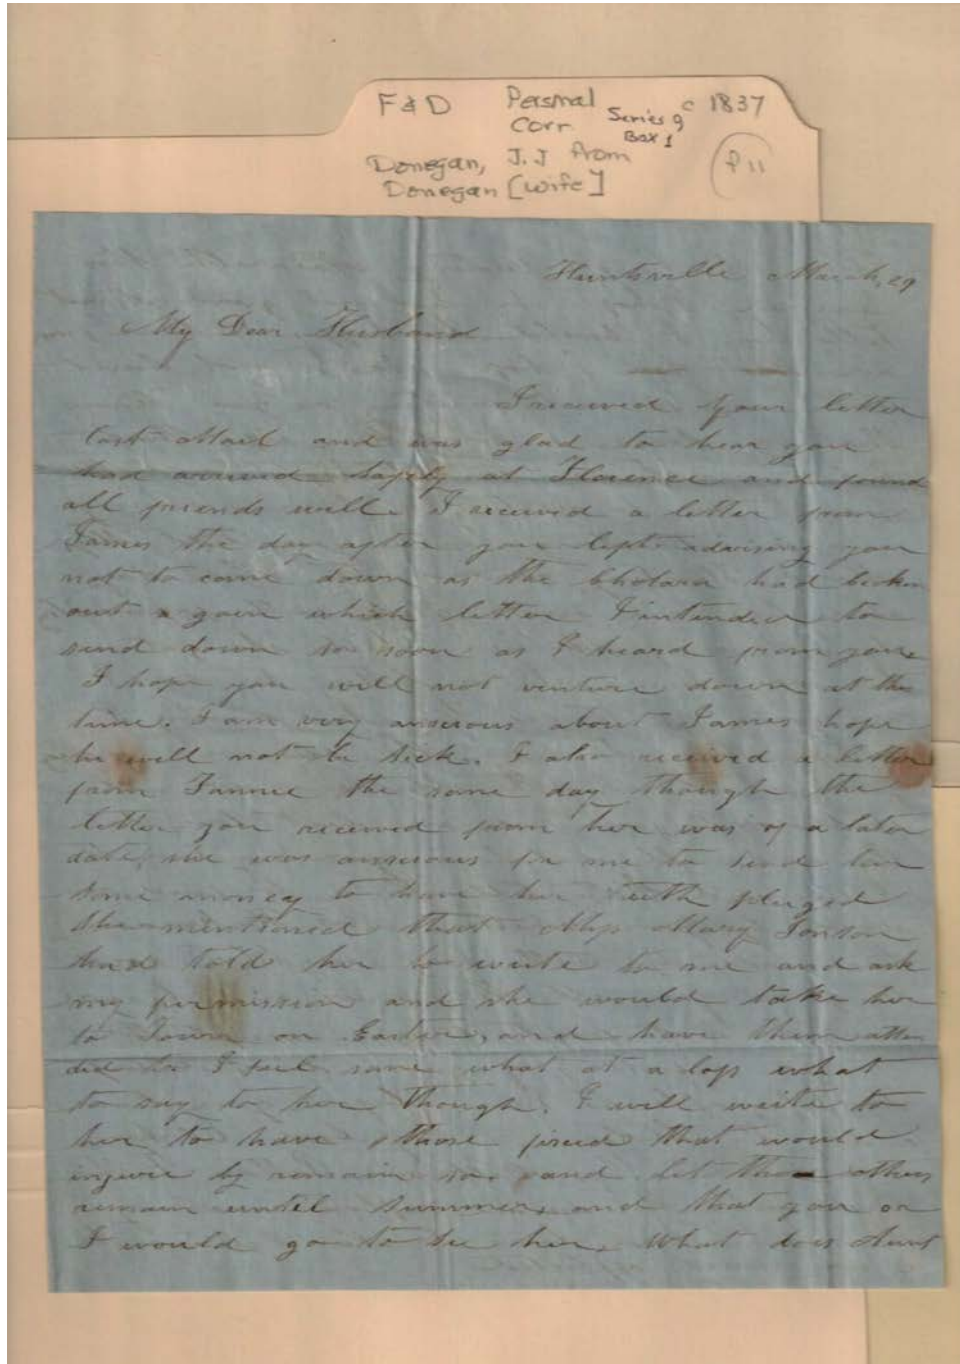 F & D Personal c 1837
Corr Series 9
Box 1
Donegan, J.J from P 11
Donegan [wife]
Huntsville March, 29
My Dear Husband
I received your letter
last Mail and was glad to hear you
had arrived safely at Florence and found
all friends well. I received a letter from
James the day after you left advising you
not to come down as the Cholara had broken
out a gain which letter I intended to
send down so soon as I heard from you.
I hope you will not venture down at the
time. I am very anxious about James hope
he will not be sick. I also received a letter
from Fannie the same day though the
letter you received from her was of a later
date, she was anxious for me to send her
some money to have her teeth pluged
She mentioned that Miss Mary
had told her to write to me and ask
my permission and she would take her
to Town on Easter, and have them atten
ded to I feel some what at a loss what
to say to her though. I will write to
her to have those that would
injure by remain so and let the others
remain until Summer, and that you or
I would go to see her. What does Aunt